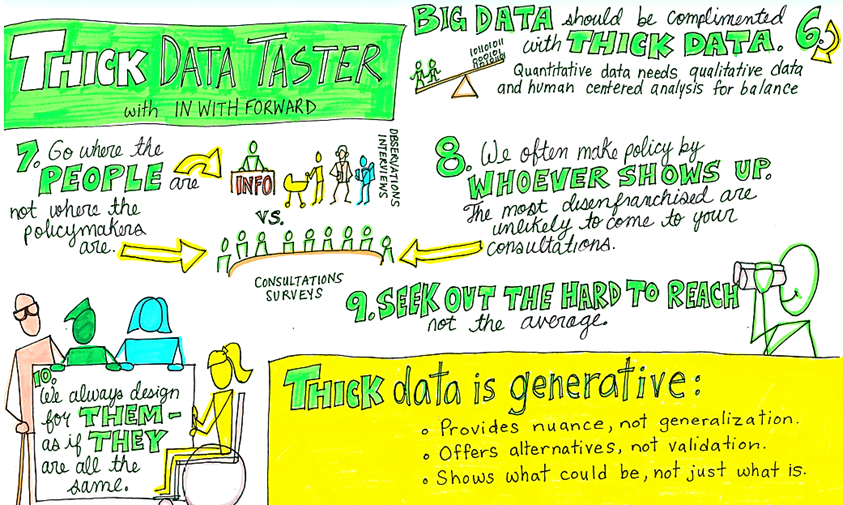 THICK DATA TASTER
with IN WITH FORWARD
BIG DATA should be complimented
with THICK DATA.
6.
10110101
Quantitative data needs qualitative data
and human centered analysis for balance
7. Go where the
PEOPLE are
not where the
policymakers
are.
INFO
OBSERVATIONS
INTERVIEWS
VS.
CONSULTATIONS
SURVEYS
8. We often make policy by
WHOEVER SHOWS UP.
The most disenfranchised are
unlikely to come to your
consultations.
9. SEEK OUT THE HARD TO REACH
not the average.
10.
We always design
for THEM-
as if THEY
are all the
same.
THICK data is generative:
• Provides nuance, not generalization.
• Offers alternatives, not validation.
• Shows what could be, not just what is.